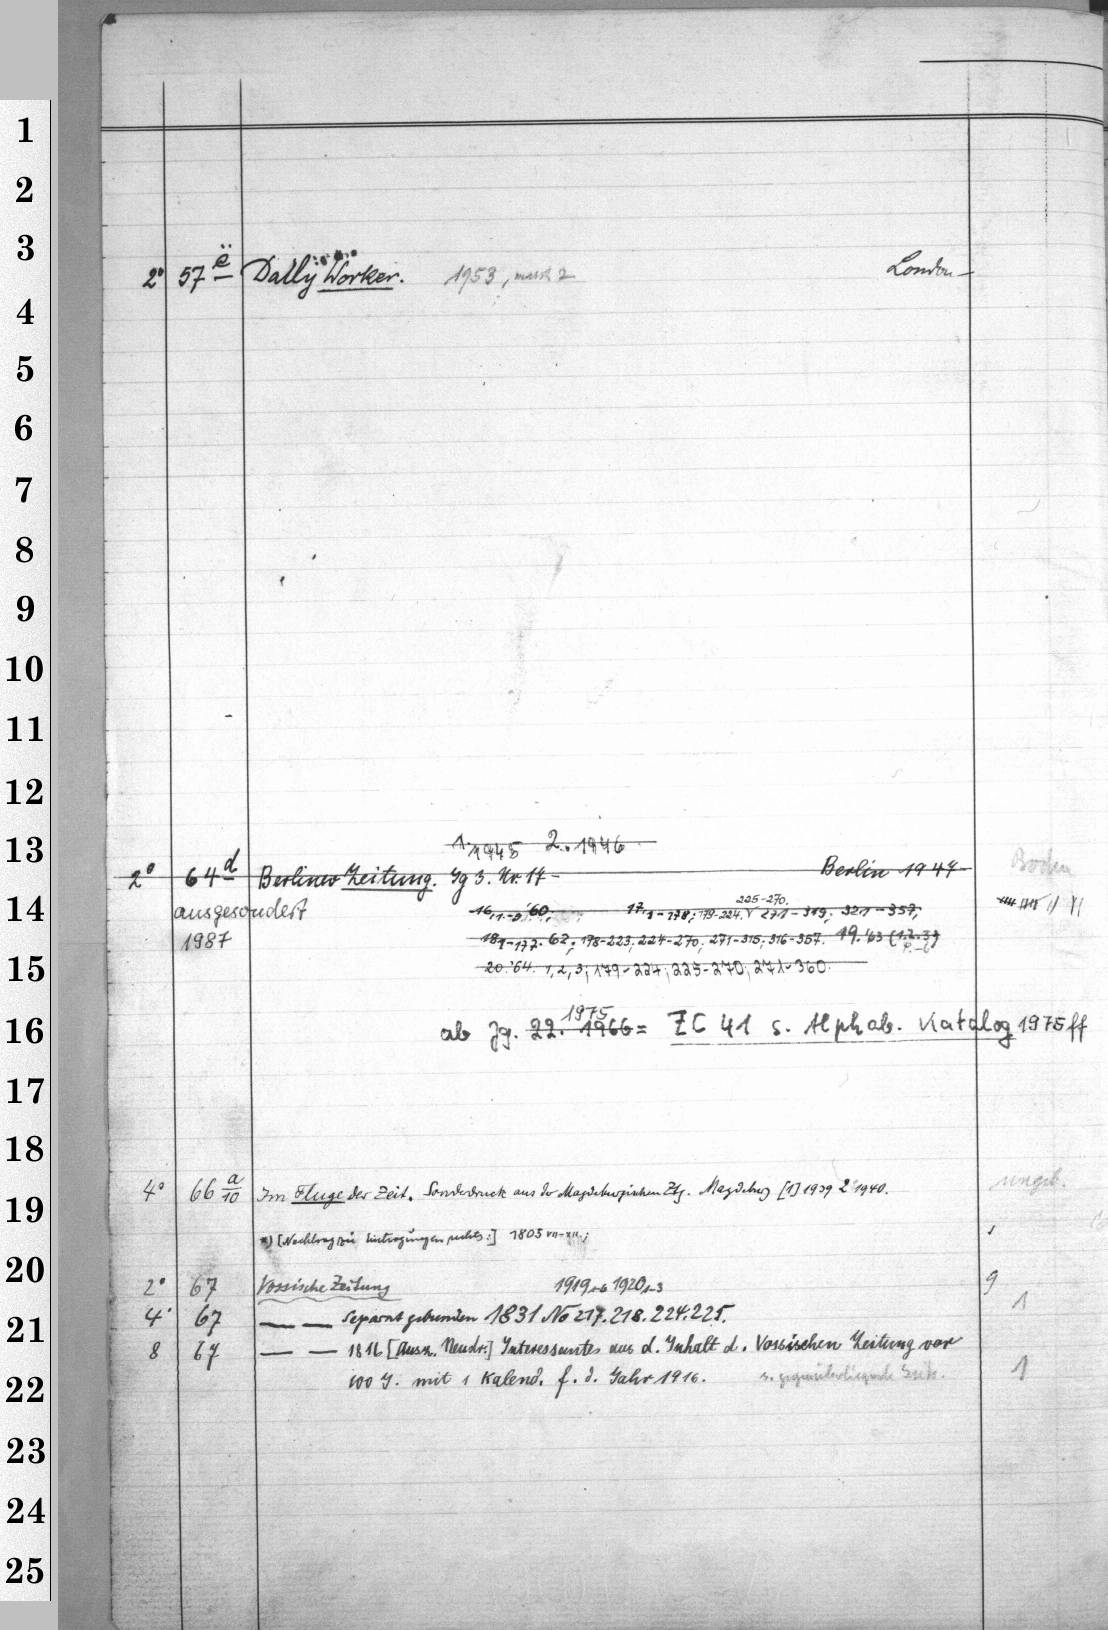 1
2
3
2° 57 ë Daily Worker. 1953, London
4
5
6
7
8
9
10
11
12
13
1. 1945 2. 1946
2° 64 d Berliner Zeitung. Jg 3. Nr. 17- Berlin 1947- Boden
14
ausgesondert
225-270.
16, '60; 17, 1-178; 179-224; 271-319; 321-357;
1987
18, 1-177. 62; 178-223, 224-270, 271-315; 316-357. 19. '63 (1.2.3)
15
20. '64. 1, 2, 3, 179-224, 225-270, 271-360.
1975
16
ab Jg. 22. 1966 = ZC 41 s. Alphab. Katalog 1975 ff
17
18
4° 66 a/10 Im Fluge der Zeit. Sonderdruck aus der Magdeburgischen Ztg. Magdeburg [1] 1939 2 1940. ungeb.
19
*) [Nachtrag zu Eintragungen rechts:] 1805 VII-XII.;
20
2° 67 Vossische Zeitung 1919 1920 1-3 9
4° 67 — — Separat gebunden 1831 No 217. 218. 224. 225. 1
21
8 67 — — 1816 [Ausz. Neudr.] Interessantes aus d. Inhalt d. Vossischen Zeitung vor
22
100 J. mit 1 Kalend. f. d. Jahr 1916. s. gegenüberliegende Seite. 1
23
24
25